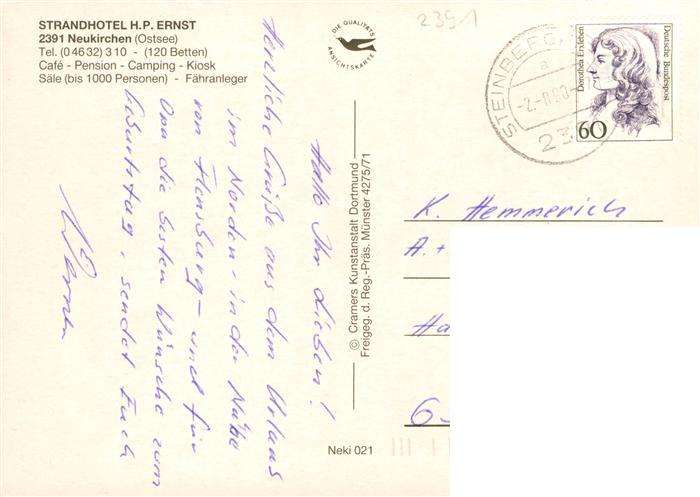 STRANDHOTEL H.P. ERNST
2391 Neukirchen (Ostsee)
Tel. (04632) 310 - (120 Betten)
Café - Pension - Camping - Kiosk
Säle (bis 1000 Personen) - Fähranleger
DIE QUALITÄTS
ANSICHTSKARTE
2391
STEINBERG
a
-2.-8.90-
23
Dorothea Erxleben
Deutsche Bundespost
60
Hallo Ihr Lieben!
Herzliche Grüße aus dem Urlaub
im Norden - in der Nähe
von Flensburg - und für
Opa die besten Wünsche zum
Geburtstag, sendet Euch
Werner
© Cramers Kunstanstalt Dortmund
Freigeg. d. Reg.-Präs. Münster 4275/71
Neki 021
K. Hemmerich
A. +
Ha
6